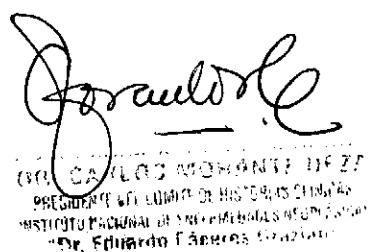 DR. CARLOS MORANTE DEZA
PRESIDENTE DEL COMITÉ DE HISTORIAS CLINICAS
INSTITUTO NACIONAL DE ENFERMEDADES NEOPLASICAS
"Dr. Eduardo Cáceres Graziani"